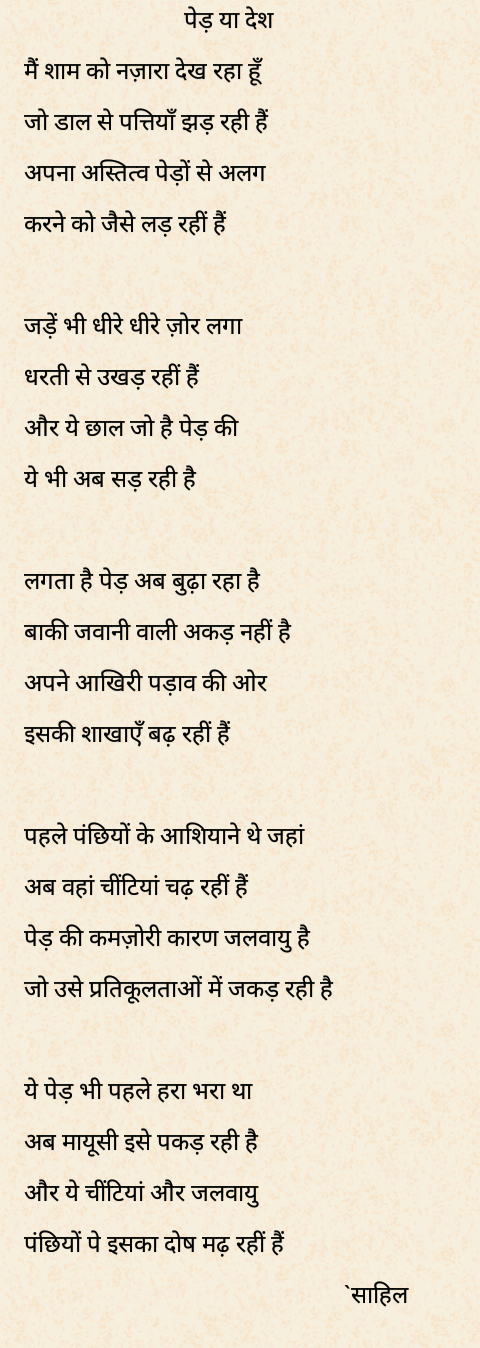 पेड़ या देश
मैं शाम को नज़ारा देख रहा हूँ
जो डाल से पत्तियाँ झड़ रही हैं
अपना अस्तित्व पेड़ों से अलग
करने को जैसे लड़ रहीं हैं
जड़ें भी धीरे धीरे ज़ोर लगा
धरती से उखड़ रहीं हैं
और ये छाल जो है पेड़ की
ये भी अब सड़ रही है
लगता है पेड़ अब बुढ़ा रहा है
बाकी जवानी वाली अकड़ नहीं है
अपने आखिरी पड़ाव की ओर
इसकी शाखाएँ बढ़ रहीं हैं
पहले पंछियों के आशियाने थे जहां
अब वहां चींटियां चढ़ रहीं हैं
पेड़ की कमज़ोरी कारण जलवायु है
जो उसे प्रतिकूलताओं में जकड़ रही है
ये पेड़ भी पहले हरा भरा था
अब मायूसी इसे पकड़ रही है
और ये चींटियां और जलवायु
पंछियों पे इसका दोष मढ़ रहीं हैं
`साहिल